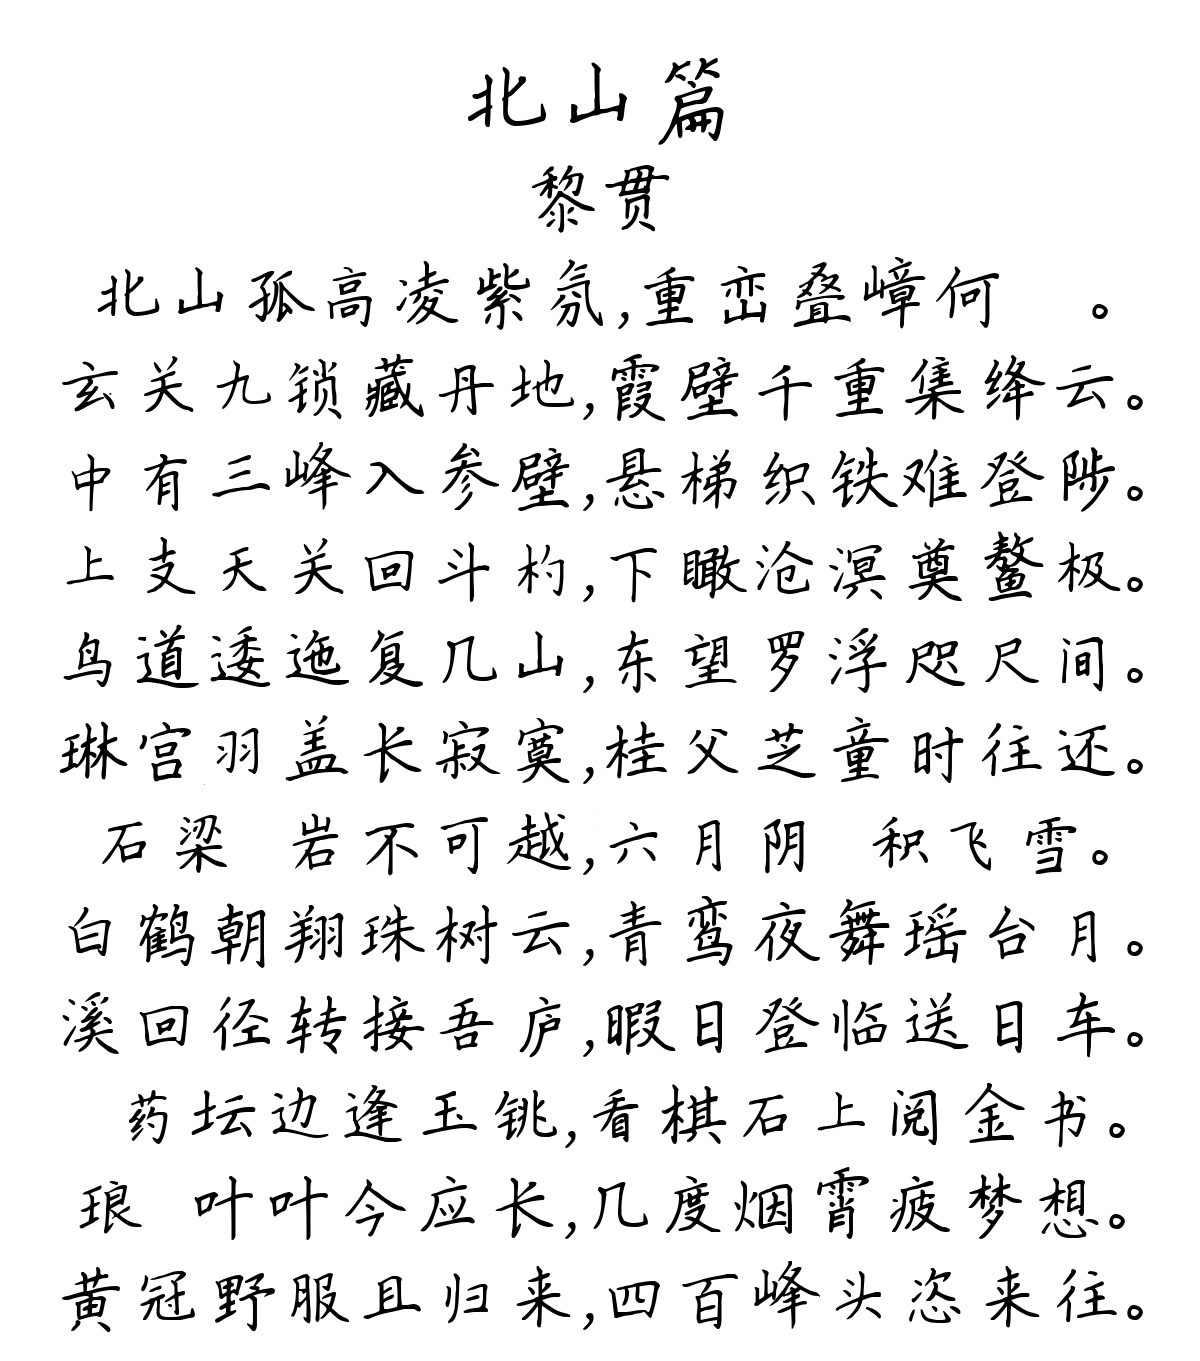 北山篇
黎贯
北山孤高凌紫氛,重峦叠嶂何 。
玄关九锁藏丹地,霞壁千重集绛云。
中有三峰入参壁,悬梯织铁难登陟。
上支天关回斗杓,下瞰沧溟奠鳌极。
鸟道逶迤复几山,东望罗浮咫尺间。
琳宫羽盖长寂寞,桂父芝童时往还。
石梁 岩不可越,六月阴 积飞雪。
白鹤朝翔珠树云,青鸾夜舞瑶台月。
溪回径转接吾庐,暇日登临送日车。
药坛边逢玉铫,看棋石上阅金书。
琅 叶叶今应长,几度烟霄疲梦想。
黄冠野服且归来,四百峰头恣来往。